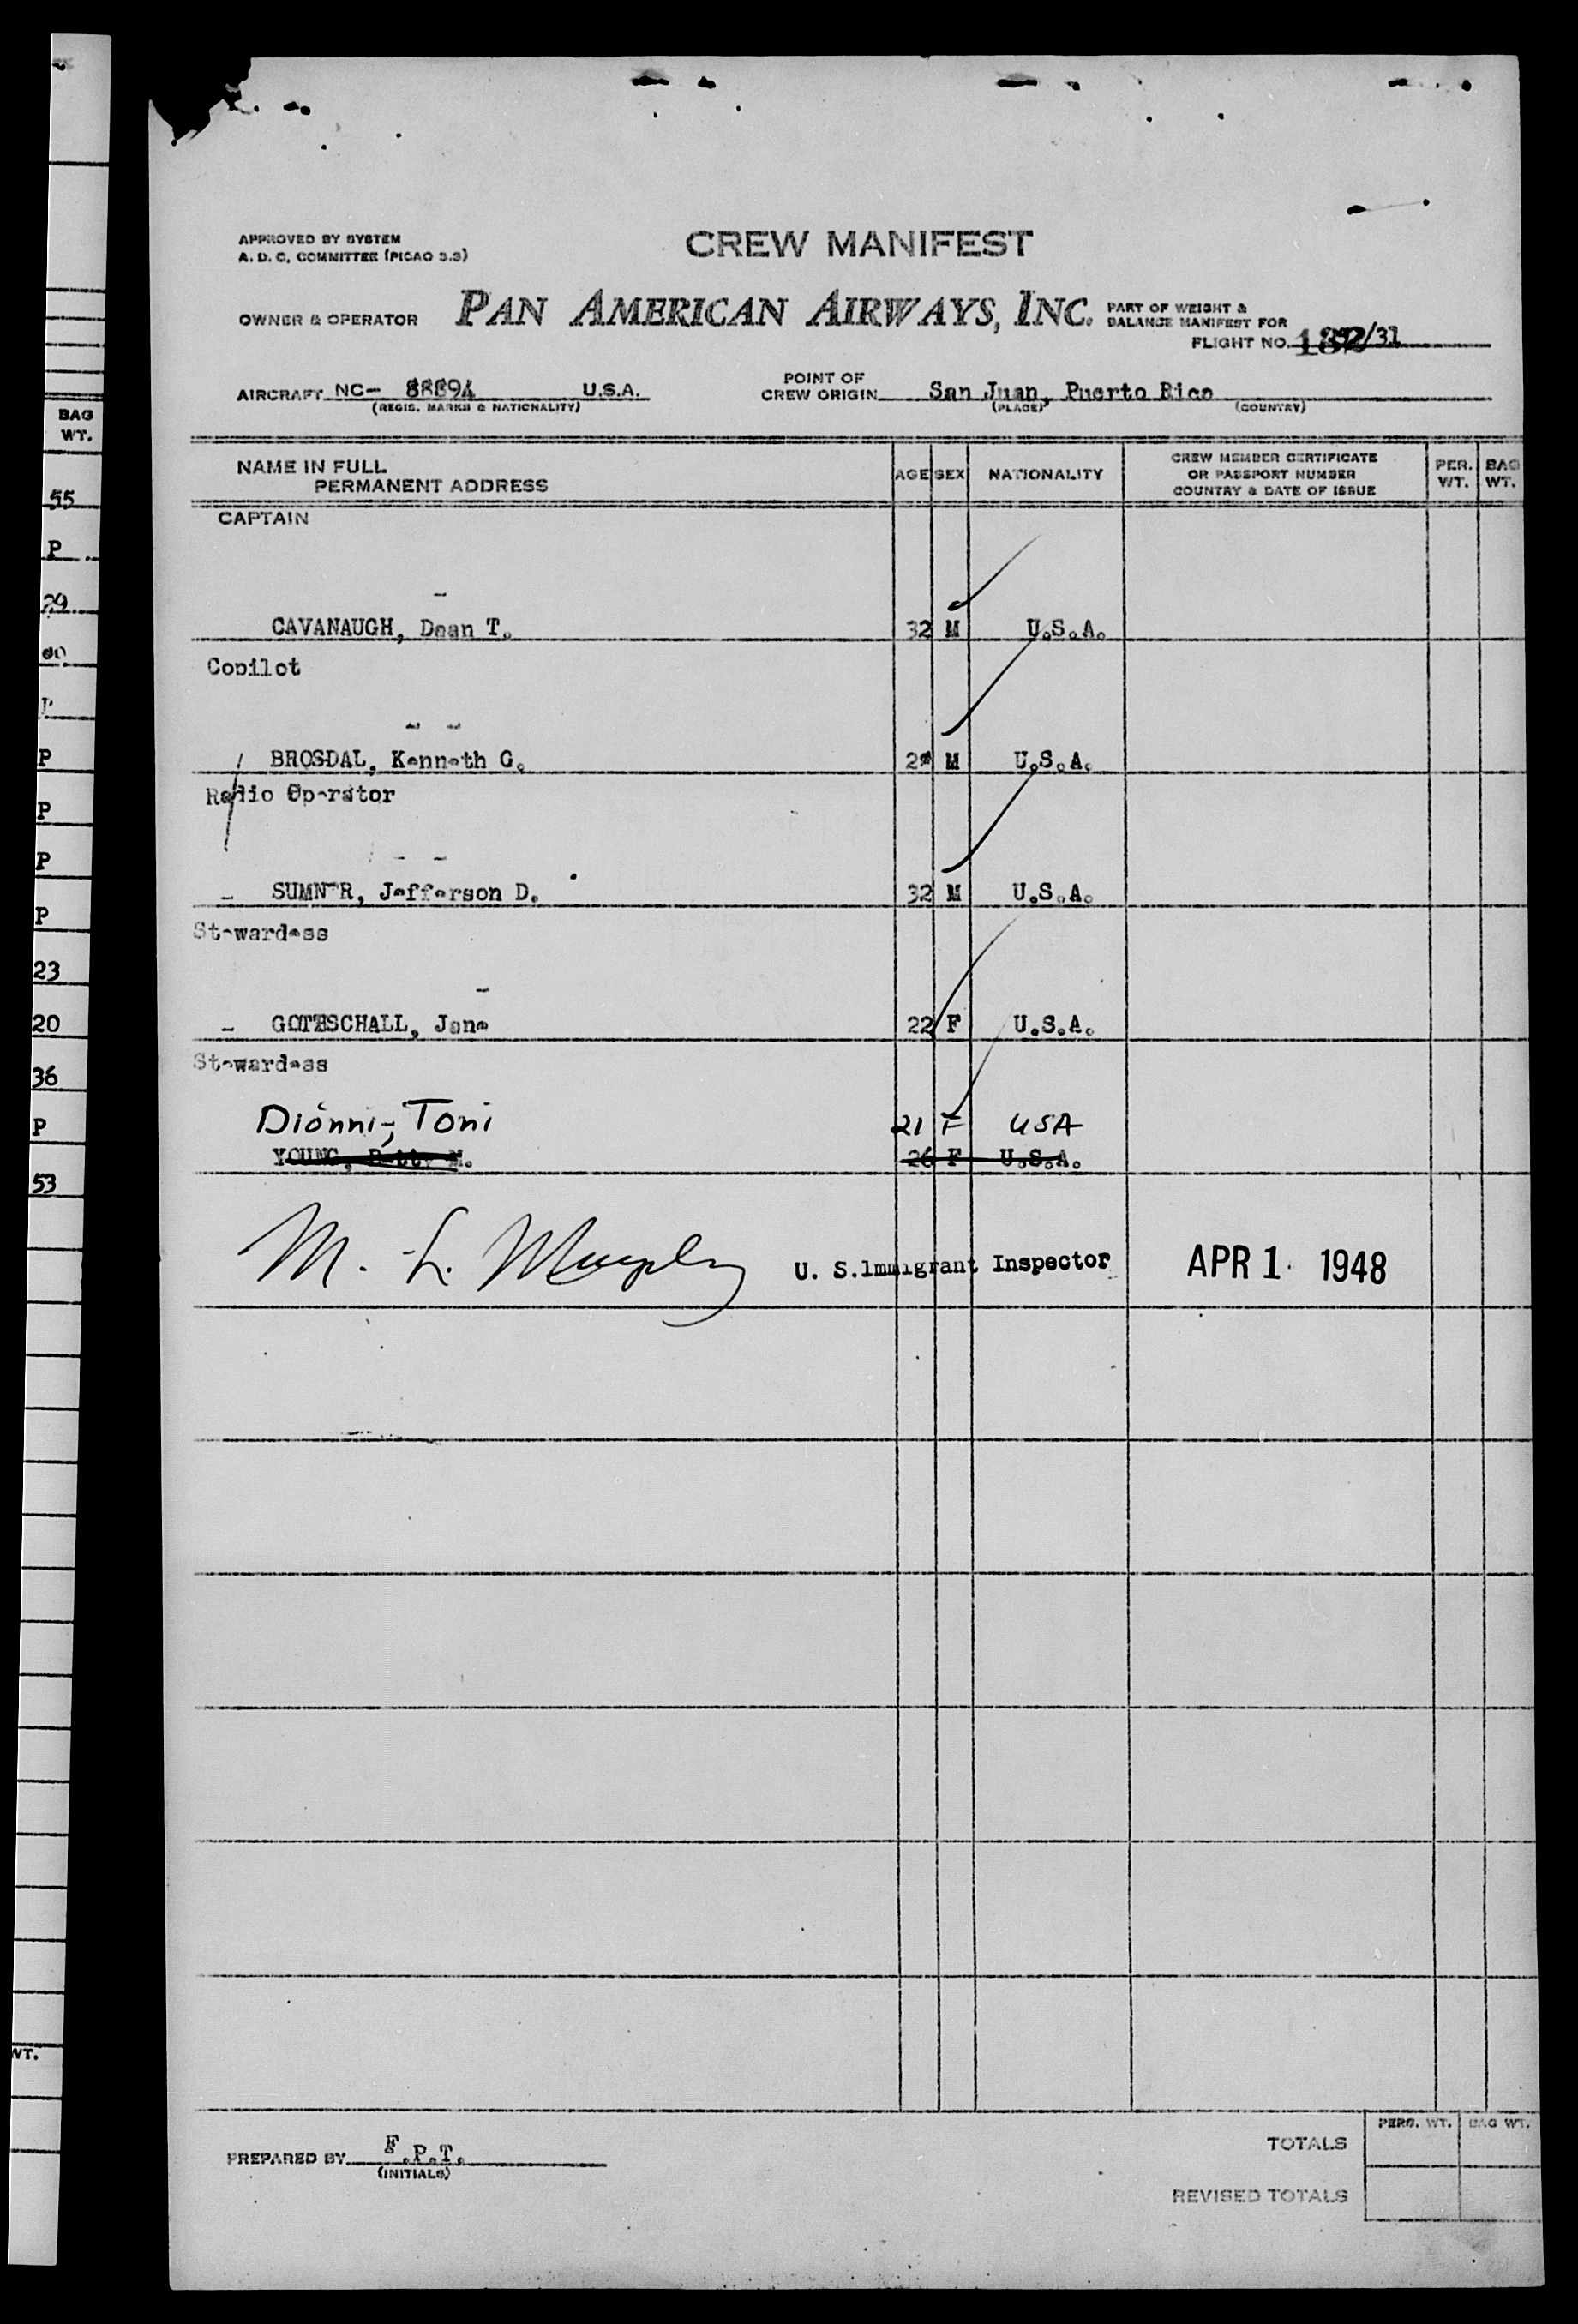 BAG
WT.
55
P
29
P
P
P
P
P
23
20
36
P
53
WT.
APPROVED BY SYSTEM
A. D. C. COMMITTEE (PICAO 3.3)
CREW MANIFEST
OWNER & OPERATOR PAN AMERICAN AIRWAYS, INC. PART OF WEIGHT &
BALANCE MANIFEST FOR
FLIGHT NO. /31
AIRCRAFT NC- U.S.A.
(REGIS. MARKS & NATIONALITY)
POINT OF
CREW ORIGIN San Juan, Puerto Rico
(PLACE) (COUNTRY)
NAME IN FULL
PERMANENT ADDRESS
AGE SEX NATIONALITY
CREW MEMBER CERTIFICATE
OR PASSPORT NUMBER
COUNTRY & DATE OF ISSUE
PER.
WT.
BAG
WT.
CAPTAIN
CAVANAUGH, Dean T. 32 M U.S.A.
Copilot
BROSDAL, Kenneth G. M U.S.A.
Radio Operator
SUMNER, Jefferson D. 32 M U.S.A.
Stewardess
GOTTSCHALL, Jane 22 F U.S.A.
Stewardess
Dionni, Toni 21 F USA
YOUNG, Betty M. 26 F U.S.A.
M. L. Murphy U. S. Immigrant Inspector APR 1 1948
PREPARED BY F.P.T.
(INITIALS)
TOTALS
PERS. WT. BAG WT.
REVISED TOTALS